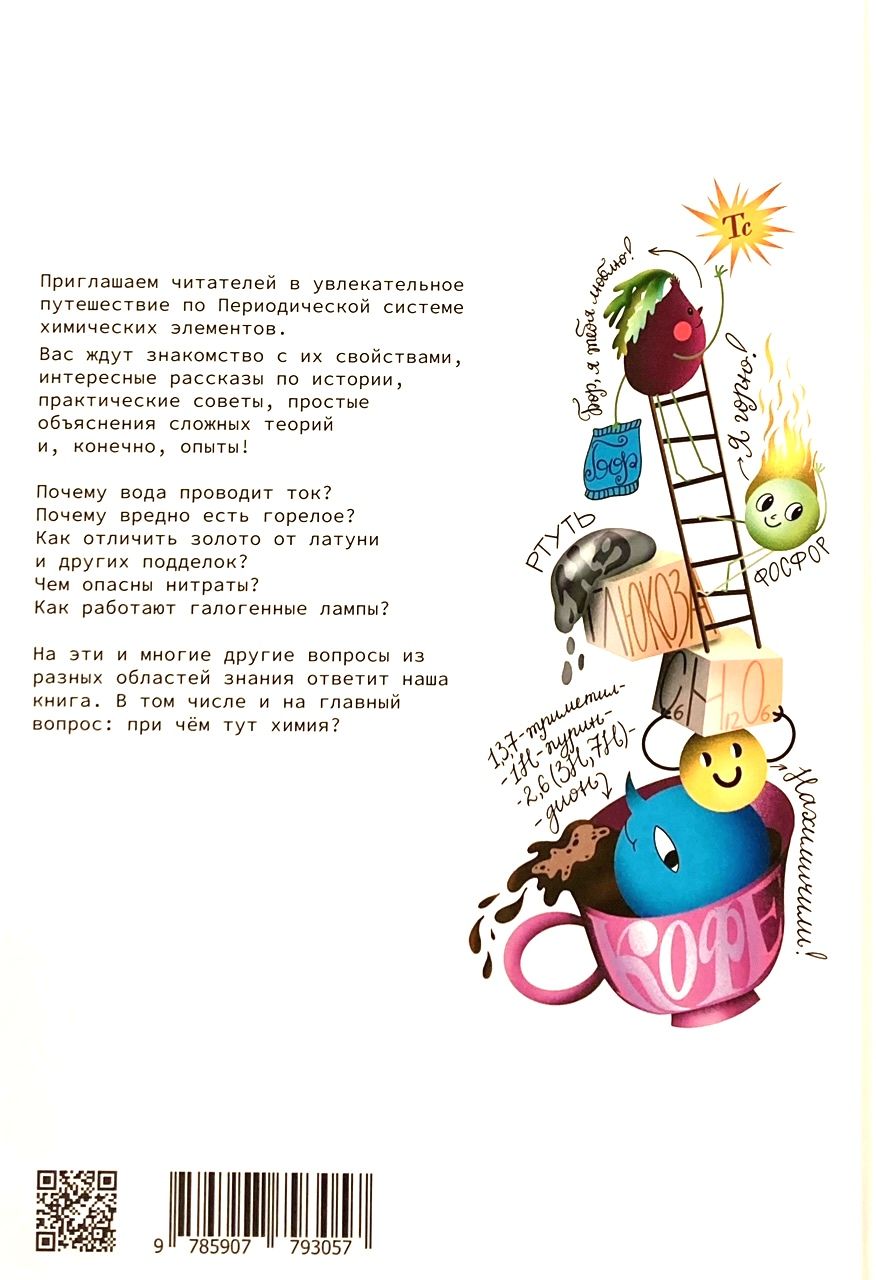 Приглашаем читателей в увлекательное
путешествие по Периодической системе
химических элементов.
Вас ждут знакомство с их свойствами,
интересные рассказы по истории,
практические советы, простые
объяснения сложных теорий
и, конечно, опыты!
Почему вода проводит ток?
Почему вредно есть горелое?
Как отличить золото от латуни
и других подделок?
Чем опасны нитраты?
Как работают галогенные лампы?
На эти и многие другие вопросы из
разных областей знания ответит наша
книга. В том числе и на главный
вопрос: при чём тут химия?
Tc
Бор, я тебя люблю!
Бор
Я горю!
ФОСФОР
РТУТЬ
ГЛЮКОЗА
C6H12O6
1,3,7-триметил-
-1H-пурин-
-2,6(3H,7H)-
-дион
Нахимичили!
КОФЕ
9 785907 793057